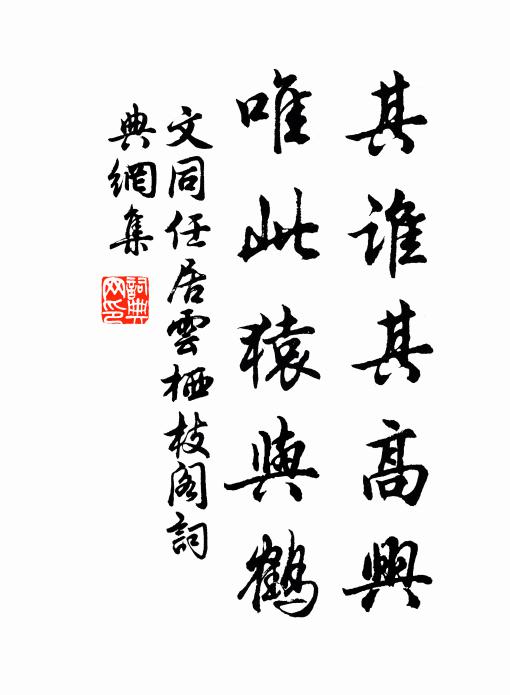 其誰其高興
唯此猿與鶴
文同任居雲栖枝閣詞
典網集
詞典
网印